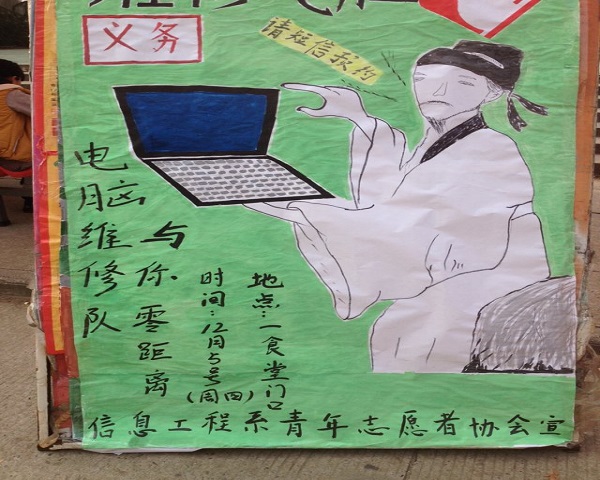 义务
请短信预约
电脑维修队
与你零距离
时间:12月5号(周四)
地点:一食堂门口
信息工程系青年志愿者协会宣